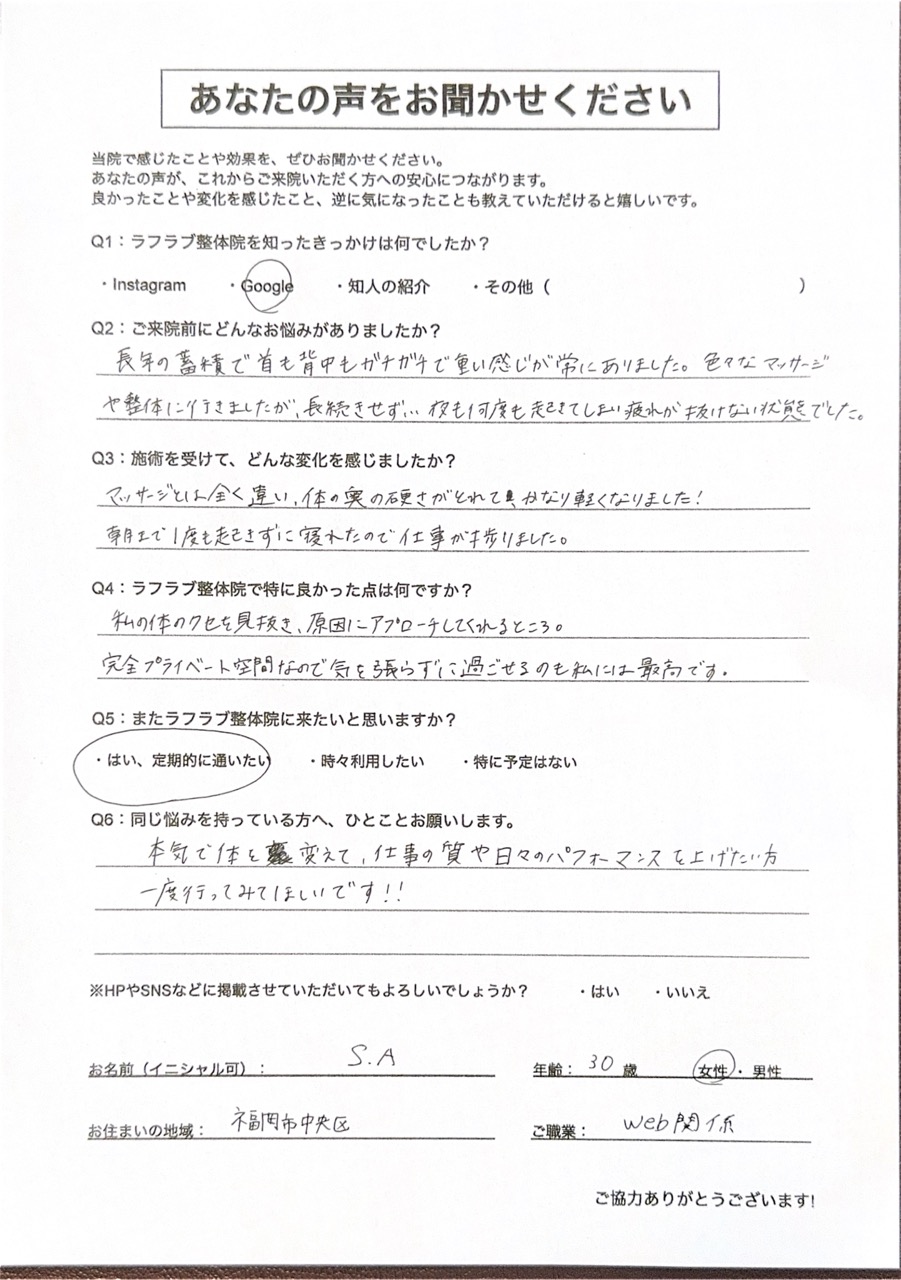 あなたの声をお聞かせください
当院で感じたことや効果を、ぜひお聞かせください。
あなたの声が、これからご来院いただく方への安心につながります。
良かったことや変化を感じたこと、逆に気になったことも教えていただけると嬉しいです。
Q1：ラフラブ整体院を知ったきっかけは何でしたか？
・Instagram ・Google ・知人の紹介 ・その他（ ）
Q2：ご来院前にどんなお悩みがありましたか？
長年の蓄積で首も背中もガチガチで重い感じが常にありました。色々なマッサージ
や整体に行きましたが、長続きせず… 夜も何度も起きてしまい疲れが抜けない状態でした。
Q3：施術を受けて、どんな変化を感じましたか？
マッサージとは全く違い、体の奥の硬さがとれて、かなり軽くなりました！
朝まで1度も起きずに寝れたので仕事が捗りました。
Q4：ラフラブ整体院で特に良かった点は何ですか？
私の体のクセを見抜き、原因にアプローチしてくれるところ。
完全プライベート空間なので気を張らずに過ごせるのも私には最高です。
Q5：またラフラブ整体院に来たいと思いますか？
・はい、定期的に通いたい ・時々利用したい ・特に予定はない
Q6：同じ悩みを持っている方へ、ひとことお願いします。
本気で体を変えて、仕事の質や日々のパフォーマンスを上げたい方
一度行ってみてほしいです！！
※HPやSNSなどに掲載させていただいてもよろしいでしょうか？ ・はい ・いいえ
お名前（イニシャル可）： S.A 年齢： 30 歳 女性・男性
お住まいの地域： 福岡市中央区 ご職業： Web関係
ご協力ありがとうございます!